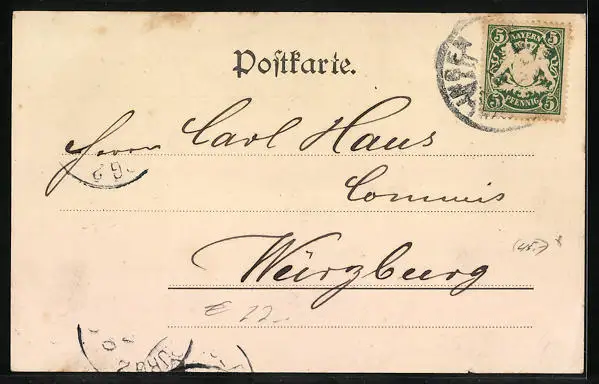 Postkarte.
5 BAYERN 5
5 PFENNIG 5
Herrn Carl Haus
Commis
Würzburg
€ 22.-